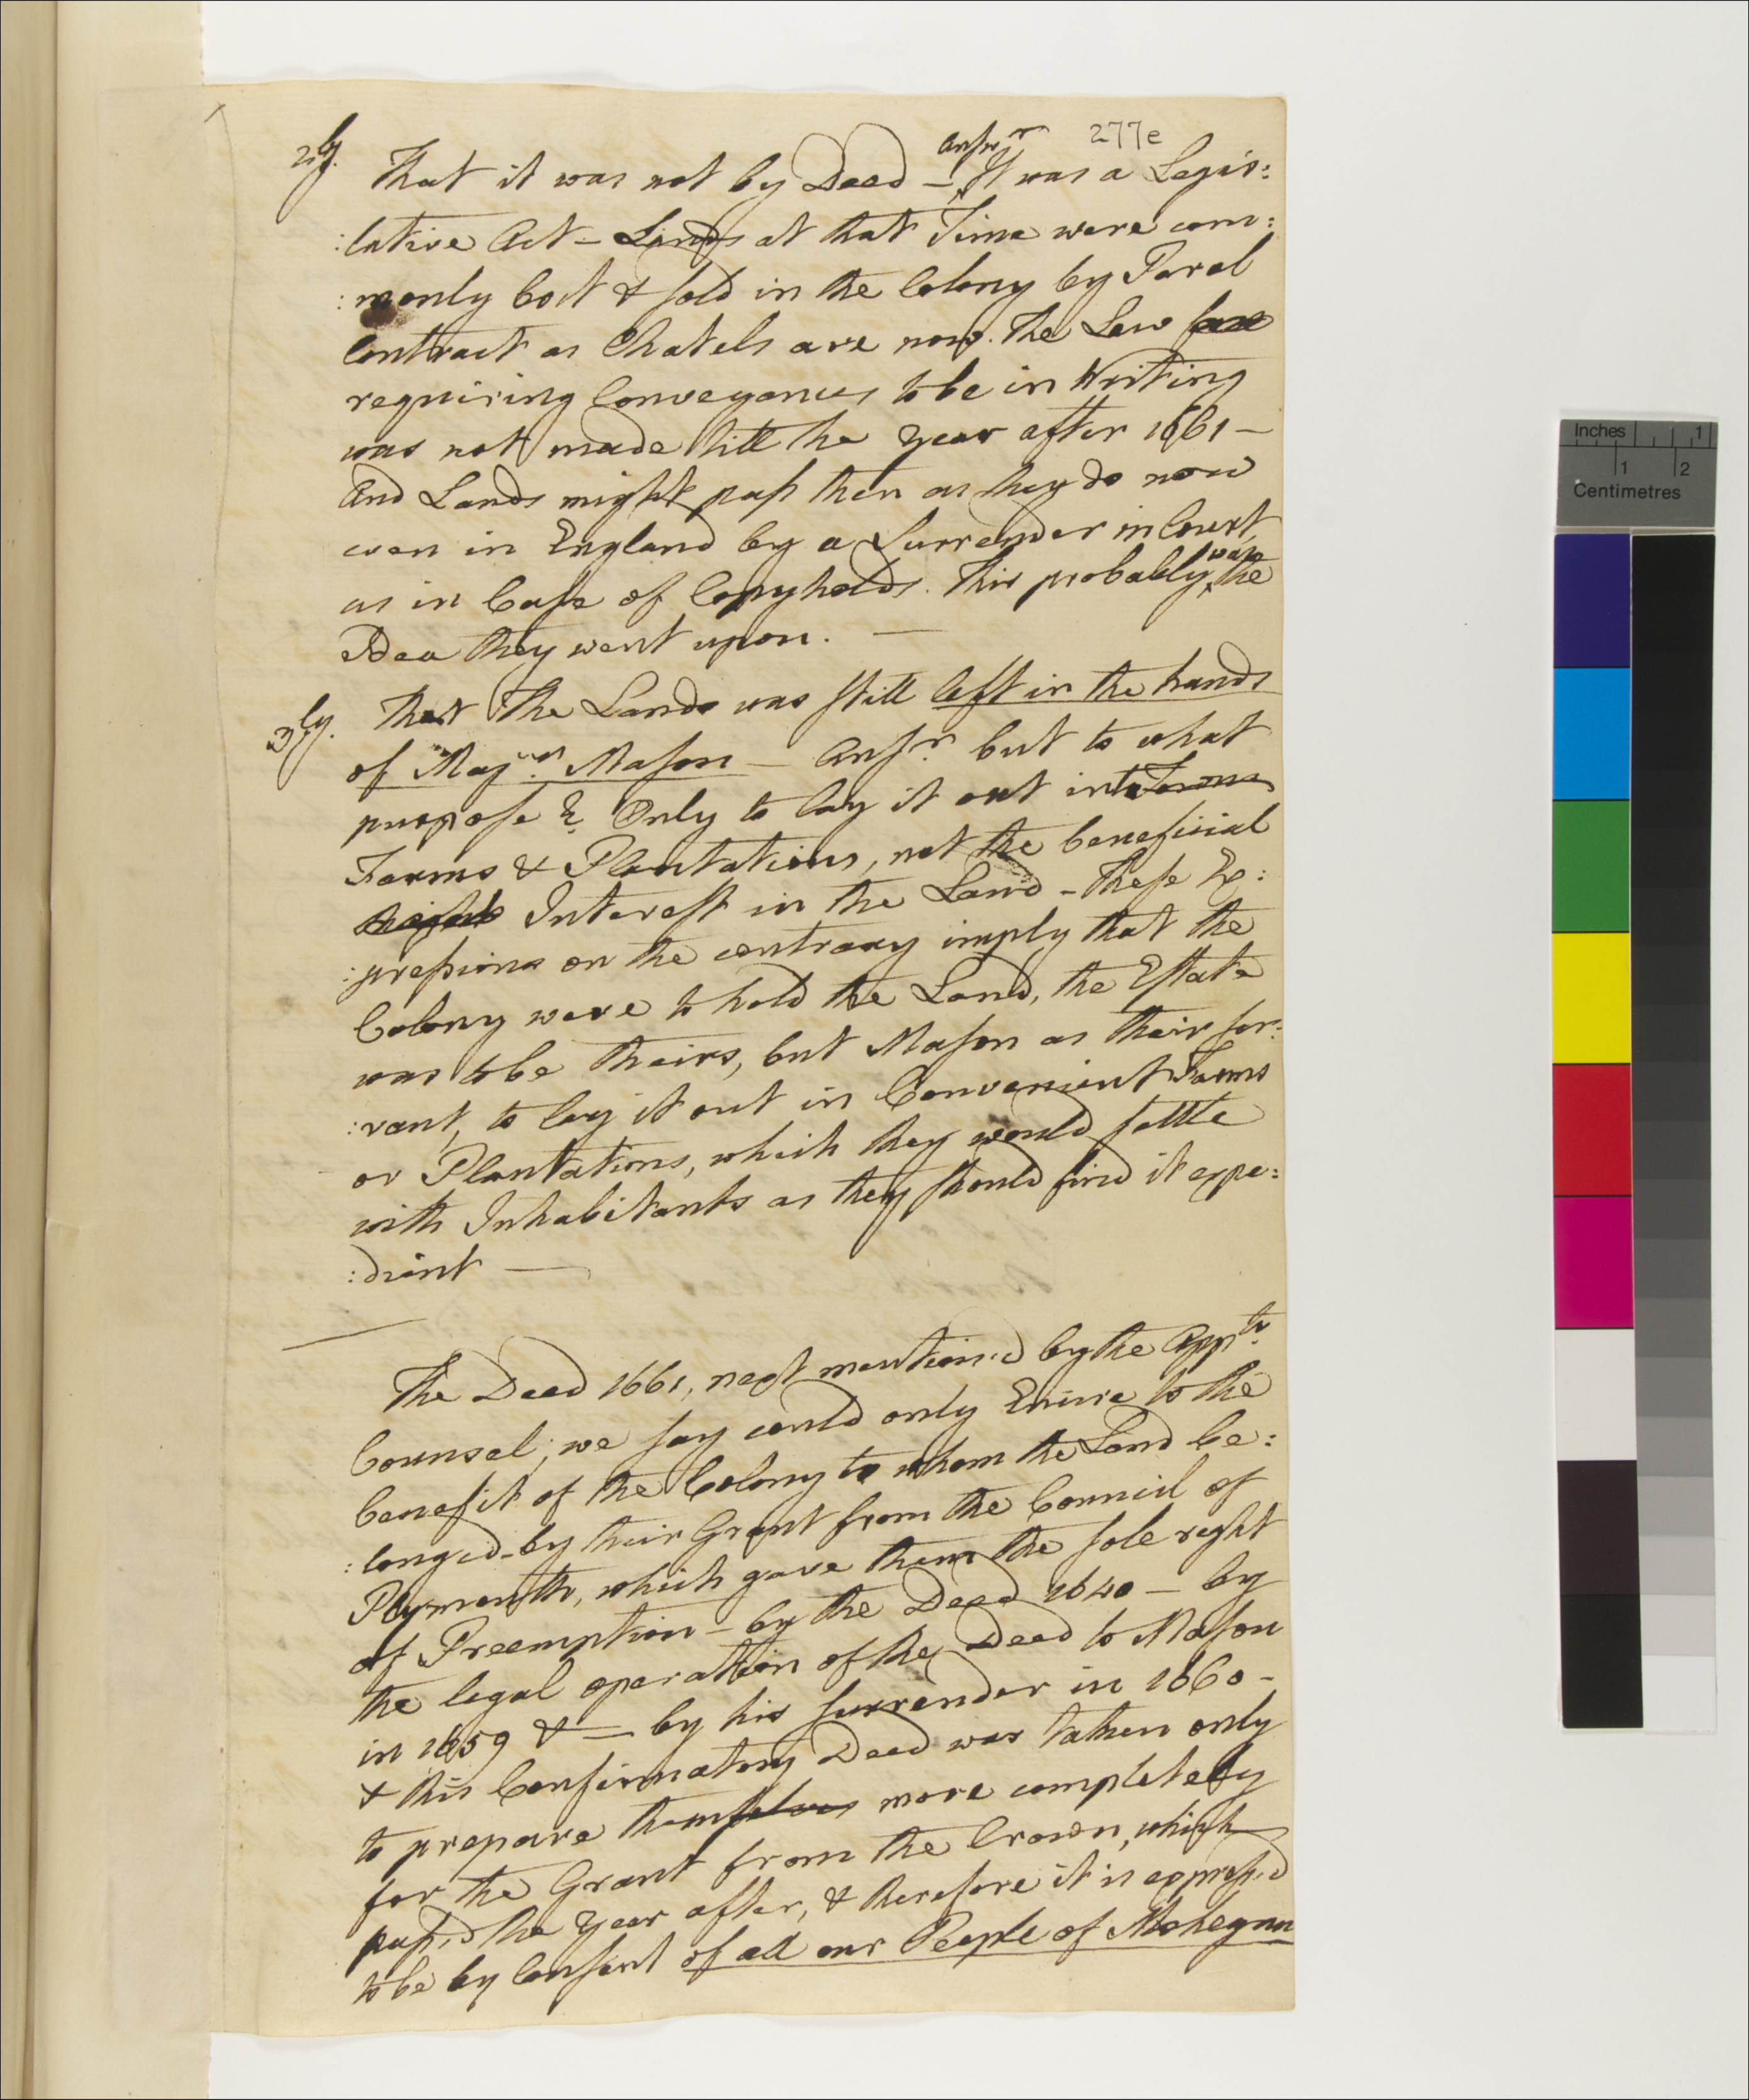 277e
2ly. That it was not by Deed – Answr It was a Legis:
:lative Act – Lands at that Time were com:
:monly bo't & sold in the Colony by Parol
Contract as Chatels are now. The Law
requiring Conveyances to be in Writing
was not made till the Year after 1661 –
And Lands might pass then as they do now
even in England by a Surrender in Court,
as in Case of Copyholds. This probably was the
Idea they went upon. —
3ly. That The Lands was still left in the hands
of Majr. Mason – Ansr. but to what
purpose? Only to lay it out into Farms
Farms & Plantations, not the beneficial
Interest in the Land – These Ex:
:pressions on the contrary imply that the
Colony were to hold the Land, the Estate
was to be theirs, but Mason as their ser:
:vant, to lay it out in Convenient Farms
or Plantations, which they would settle
with Inhabitants as they should find it expe:
:dient —
The Deed 1661, next mention'd by the Appts.
Counsel, we say could only Enure to the
benefit of the Colony to whom the Land be:
:long'd – by their Grant from the Council of
Plymouth, which gave them the sole right
of Preemption – by the Deed 1640 – by
the legal operation of the Deed to Mason
in 1659 & — by his surrender in 1660 –
& this Confirmatory Deed was taken only
to prepare themselves more completely
for the Grant from the Crown, which
pass'd the Year after, & therefore it is express'd
to be by Consent of all our People of Mohegan